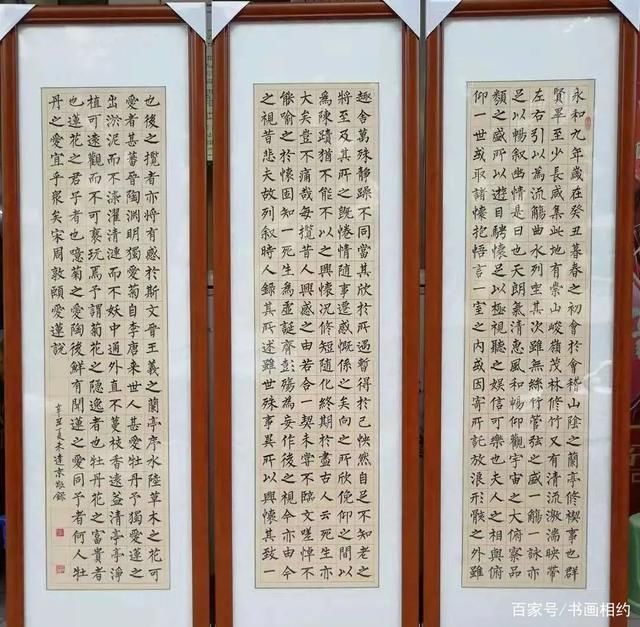 永和九年歲在癸丑暮春之初會於會稽山陰之蘭亭修禊事也群
賢畢至少長咸集此地有崇山峻嶺茂林修竹又有清流激湍映帶
左右引以為流觴曲水列坐其次雖無絲竹管弦之盛一觴一詠亦
足以暢叙幽情是日也天朗氣清惠風和暢仰觀宇宙之大俯察品
類之盛所以遊目騁懷足以極視聽之娛信可樂也夫人之相與俯
仰一世或取諸懷抱悟言一室之內或因寄所託放浪形骸之外雖
趣舍萬殊靜躁不同當其欣於所遇暫得於己怏然自足不知老之
將至及其所之既惓情隨事遷感慨係之矣向之所欣俛仰之間以
為陳蹟猶不能不以之興懷況修短隨化終期於盡古人云死生亦
大矣豈不痛哉每攬昔人興感之由若合一契未嘗不臨文嗟悼不
能喻之於懷固知一死生為虛誕齊彭殤為妄作後之視今亦由今
之視昔悲夫故列叙時人錄其所述雖世殊事異所以興懷其致一
也後之攬者亦將有感於斯文晉王羲之蘭亭序水陸草木之花可
愛者甚蕃晉陶淵明獨愛菊自李唐來世人甚愛牡丹予獨愛蓮之
出淤泥而不染濯清漣而不妖中通外直不蔓枝香遠益清亭亭淨
植可遠觀而不可褻玩焉予謂菊花之隱逸者也牡丹花之富貴者
也蓮花之君子者也噫菊之愛陶後鮮有聞蓮之愛同予者何人牡
丹之愛宜乎眾矣宋周敦頤愛蓮說
辛丑夏朱達敬錄
百家号/书画相约